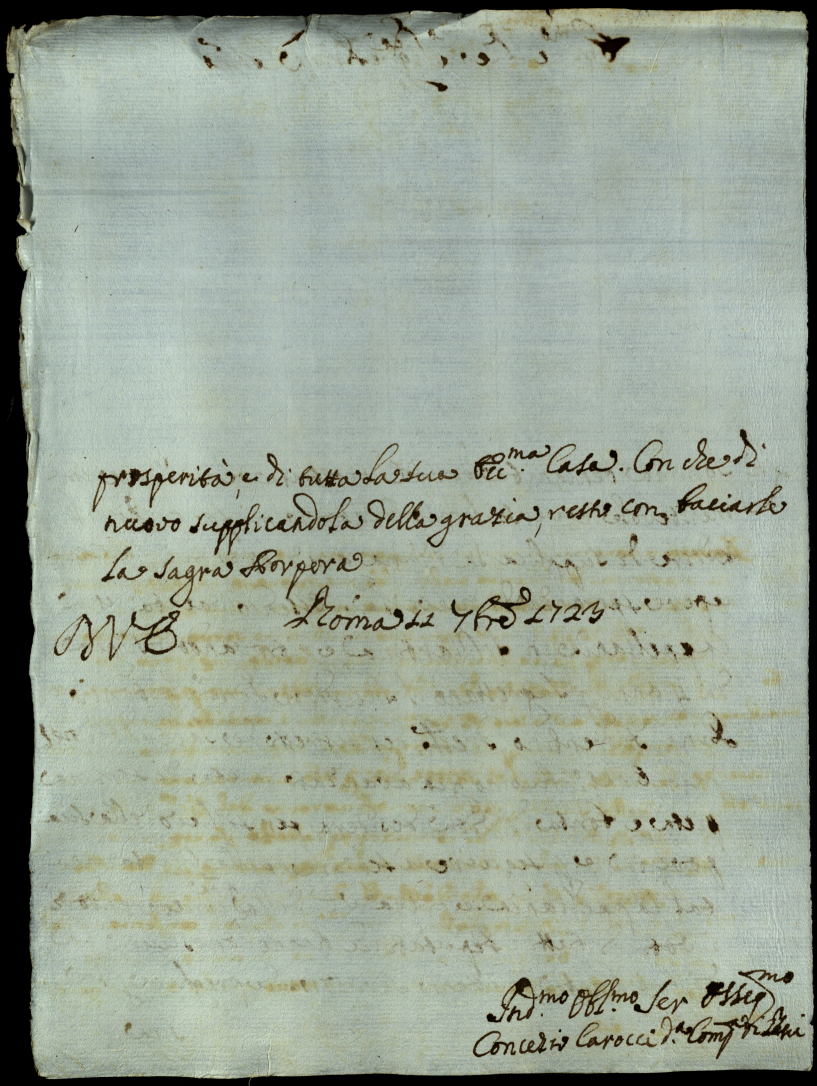 prosperità, e di tutta la sua Ecc.ma Casa. Con che di
nuovo supplicandola della grazia, resto con baciarle
la sagra Porpora
Roma 11 7bre 1723
BVE
Ind.mo Obl.mo Ser Osseq.mo
Concezio Carocci d.a Comp.a di